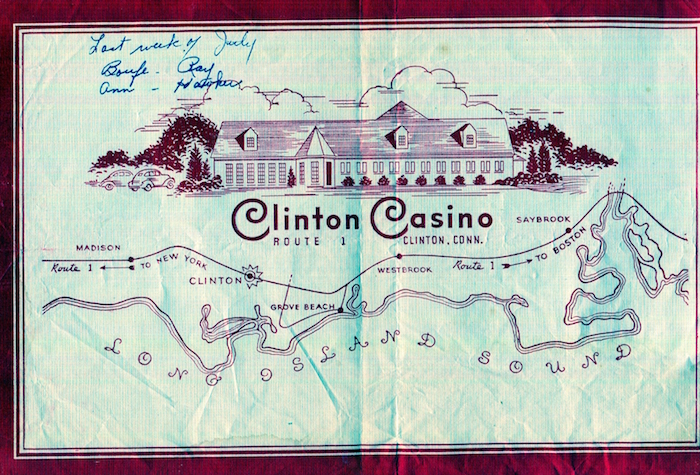 Last week of July
Ray
Ann -
Clinton Casino
ROUTE 1 CLINTON, CONN.
SAYBROOK
MADISON
Route 1 TO NEW YORK
CLINTON
WESTBROOK
Route 1 TO BOSTON
GROVE BEACH
LONG ISLAND SOUND